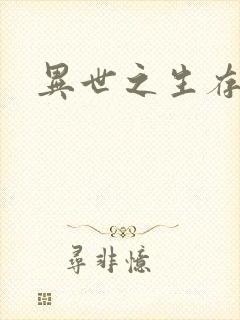 異世之生存
尋非憶